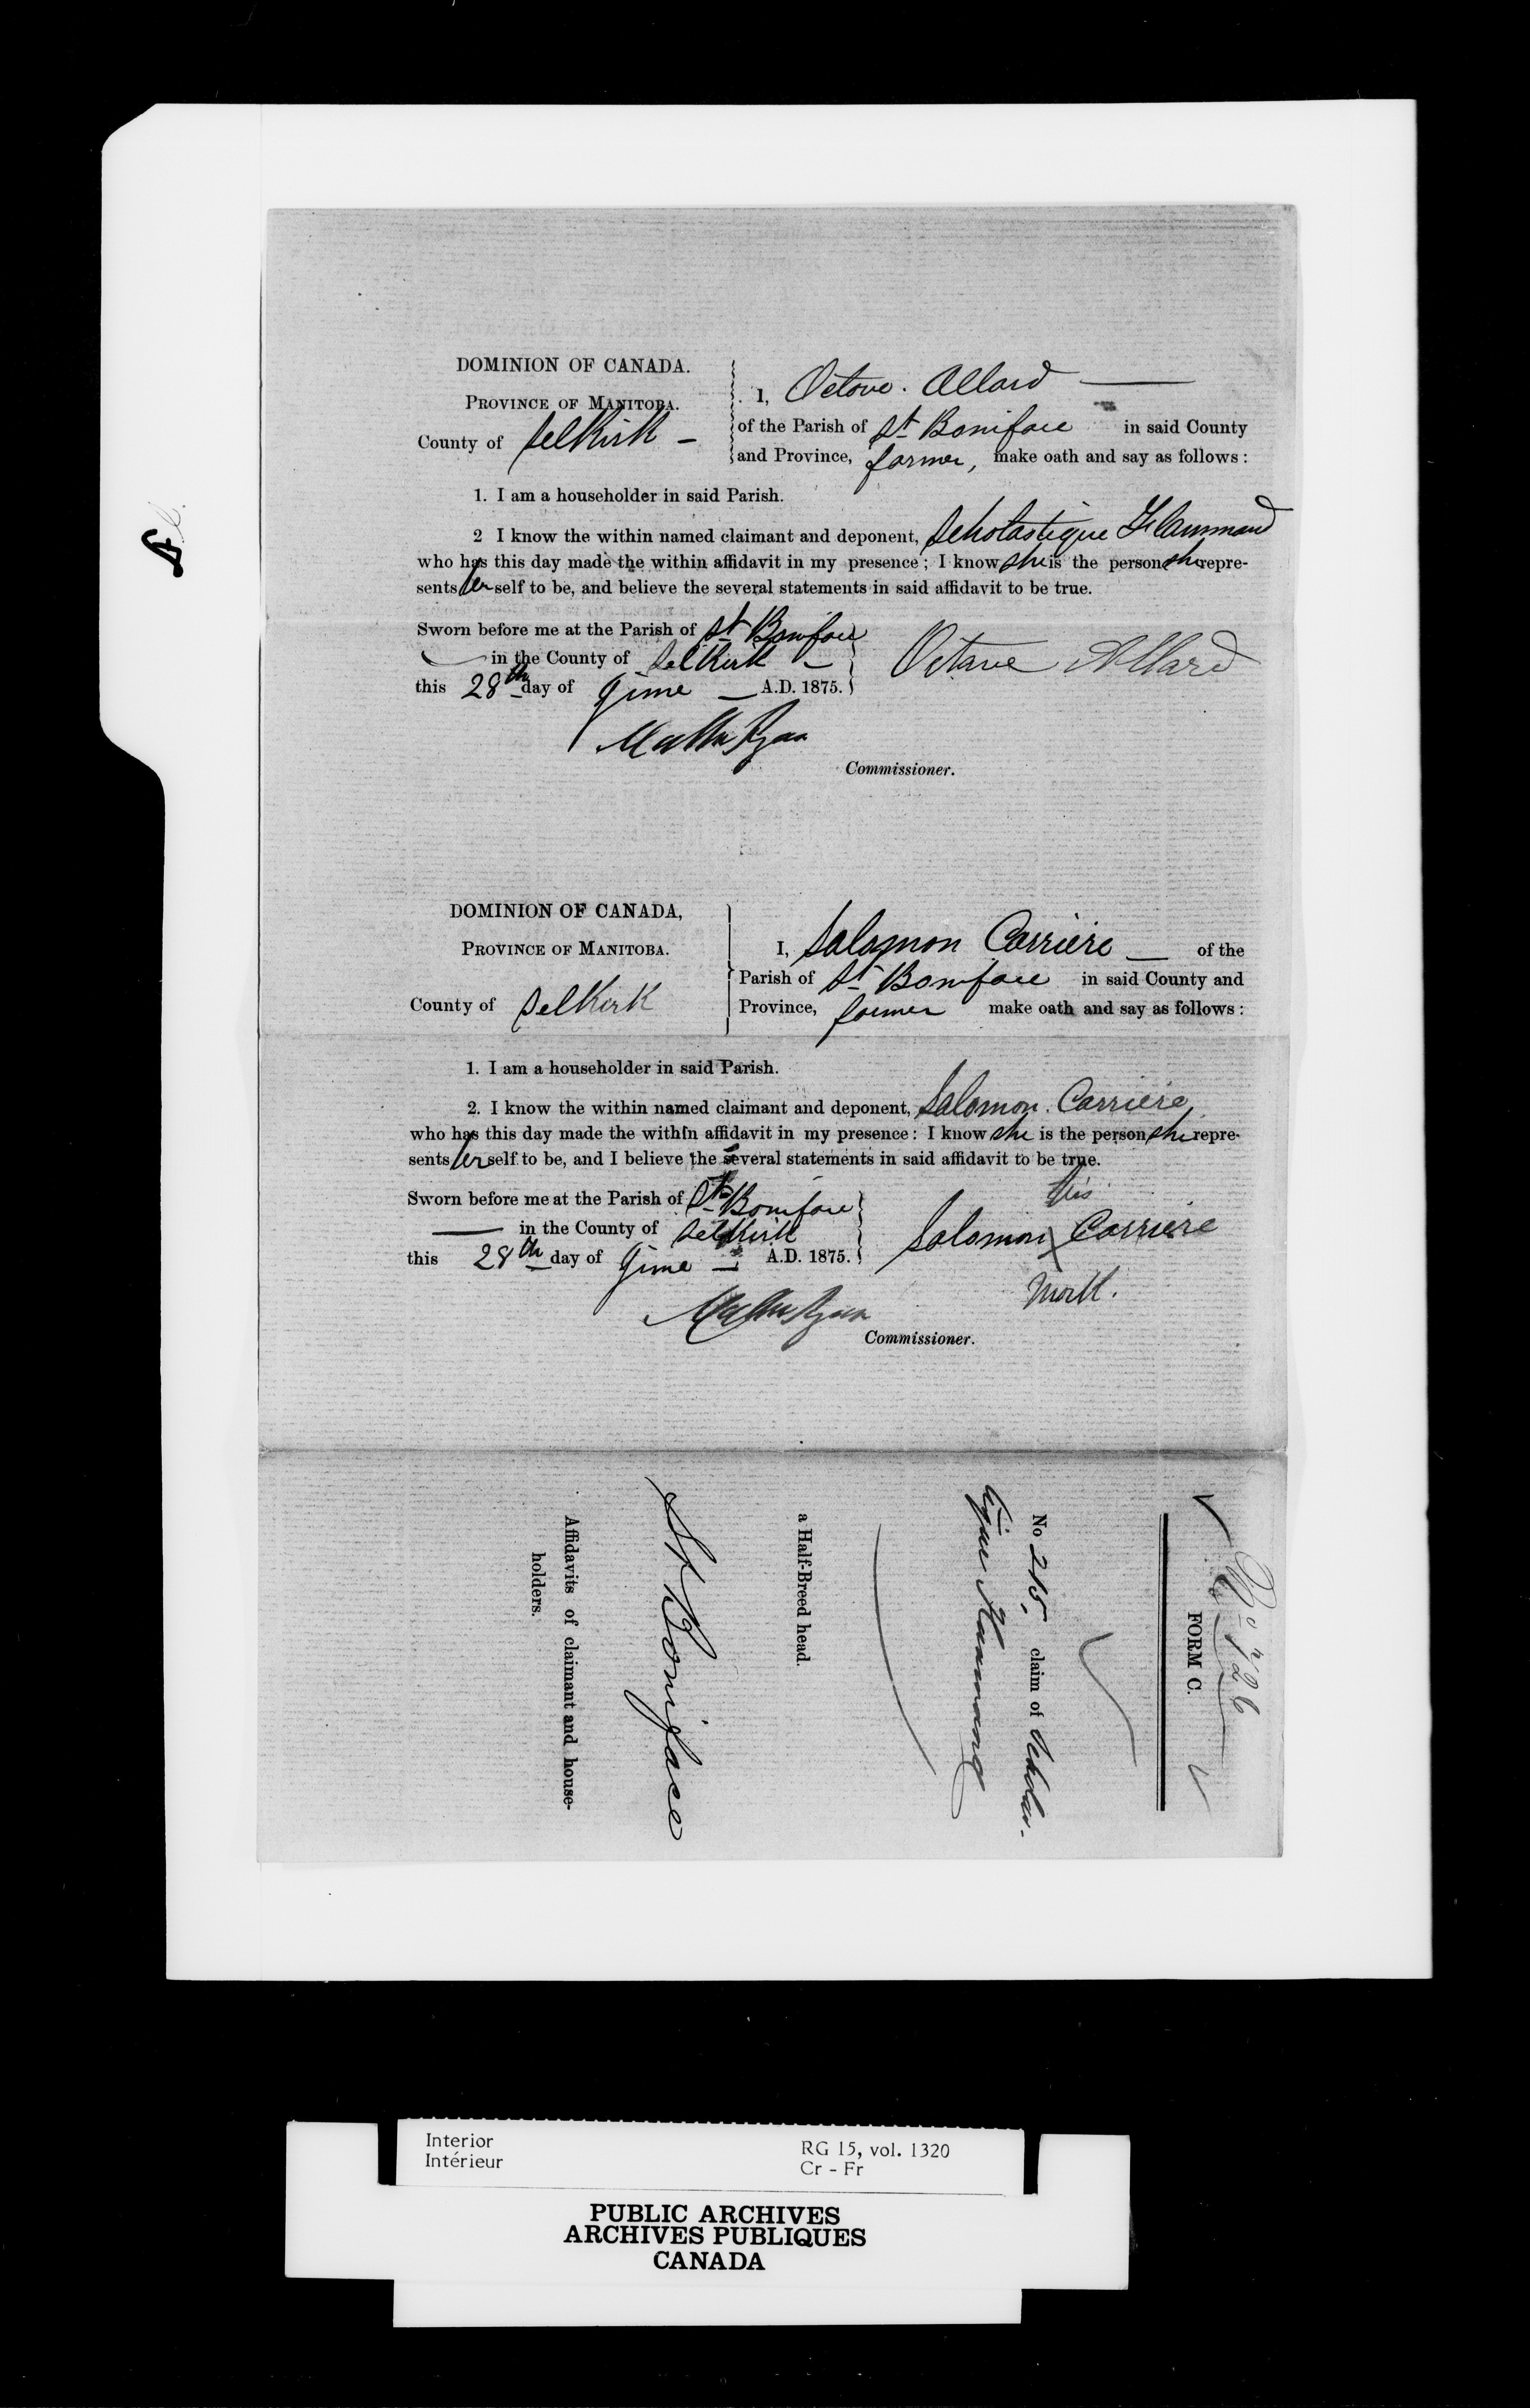 DOMINION OF CANADA.
PROVINCE OF MANITOBA.
County of Selkirk —
I, Octave. Allard —
of the Parish of St Boniface in said County
and Province, farmer, make oath and say as follows :
1. I am a householder in said Parish.
2 I know the within named claimant and deponent, Scholastique Flammand
who has this day made the within affidavit in my presence ; I know she is the person she repre-
sents herself to be, and believe the several statements in said affidavit to be true.
Sworn before me at the Parish of St Boniface
— in the County of Selkirk —
this 28th day of June — A.D. 1875.
Octave Allard
Matthew Ryan
Commissioner.
DOMINION OF CANADA,
PROVINCE OF MANITOBA.
County of Selkirk
I, Salomon Carriere — of the
Parish of St Boniface in said County and
Province, farmer make oath and say as follows :
1. I am a householder in said Parish.
2. I know the within named claimant and deponent, Salomon. Carriere,
who has this day made the within affidavit in my presence : I know she is the person she repre-
sents herself to be, and I believe the several statements in said affidavit to be true.
Sworn before me at the Parish of St Boniface
— in the County of Selkirk
this 28th day of June — A.D. 1875.
his
Salomon X Carriere
mark.
Matthew Ryan
Commissioner.
FORM C.
No 215, claim of Scholas-
tique Flammand
a Half-Breed head.
St Boniface
Affidavits of claimant and house-
holders.
Interior
Intérieur
RG 15, vol. 1320
Cr - Fr
PUBLIC ARCHIVES
ARCHIVES PUBLIQUES
CANADA